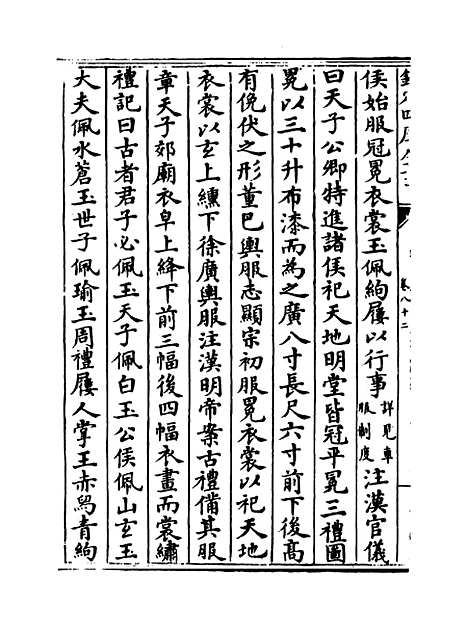 欽定四庫全書
卷八十二
侯始服冠冕衣裳玉佩絇屨以行事詳見車服制度注漢官儀
曰天子公卿特進諸侯祀天地明堂皆冠平冕三禮圖
冕以三十升布漆而為之廣八寸長尺六寸前下後髙
有俛伏之形董巴輿服志顯宗初服冕衣裳以祀天地
衣裳以玄上纁下徐廣輿服注漢明帝案古禮備其服
章天子郊廟衣皁上絳下前三幅後四幅衣畫而裳繡
禮記曰古者君子必佩玉天子佩白玉公侯佩山玄玉
大夫佩水蒼玉世子佩瑜玉周禮屨人掌王赤舄青絇